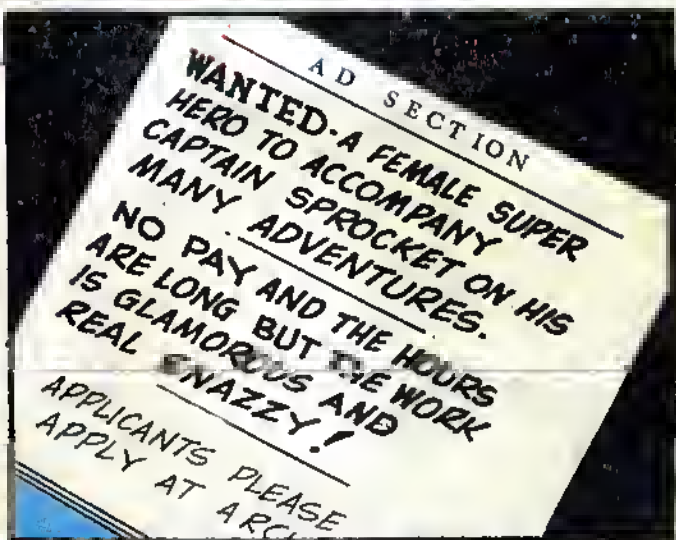 AD SECTION
WANTED-A FEMALE SUPER
HERO TO ACCOMPANY
CAPTAIN SPROCKET ON HIS
MANY ADVENTURES.
NO PAY AND THE HOURS
ARE LONG BUT THE WORK
IS GLAMOROUS AND
REAL SNAZZY!
APPLICANTS PLEASE
APPLY AT